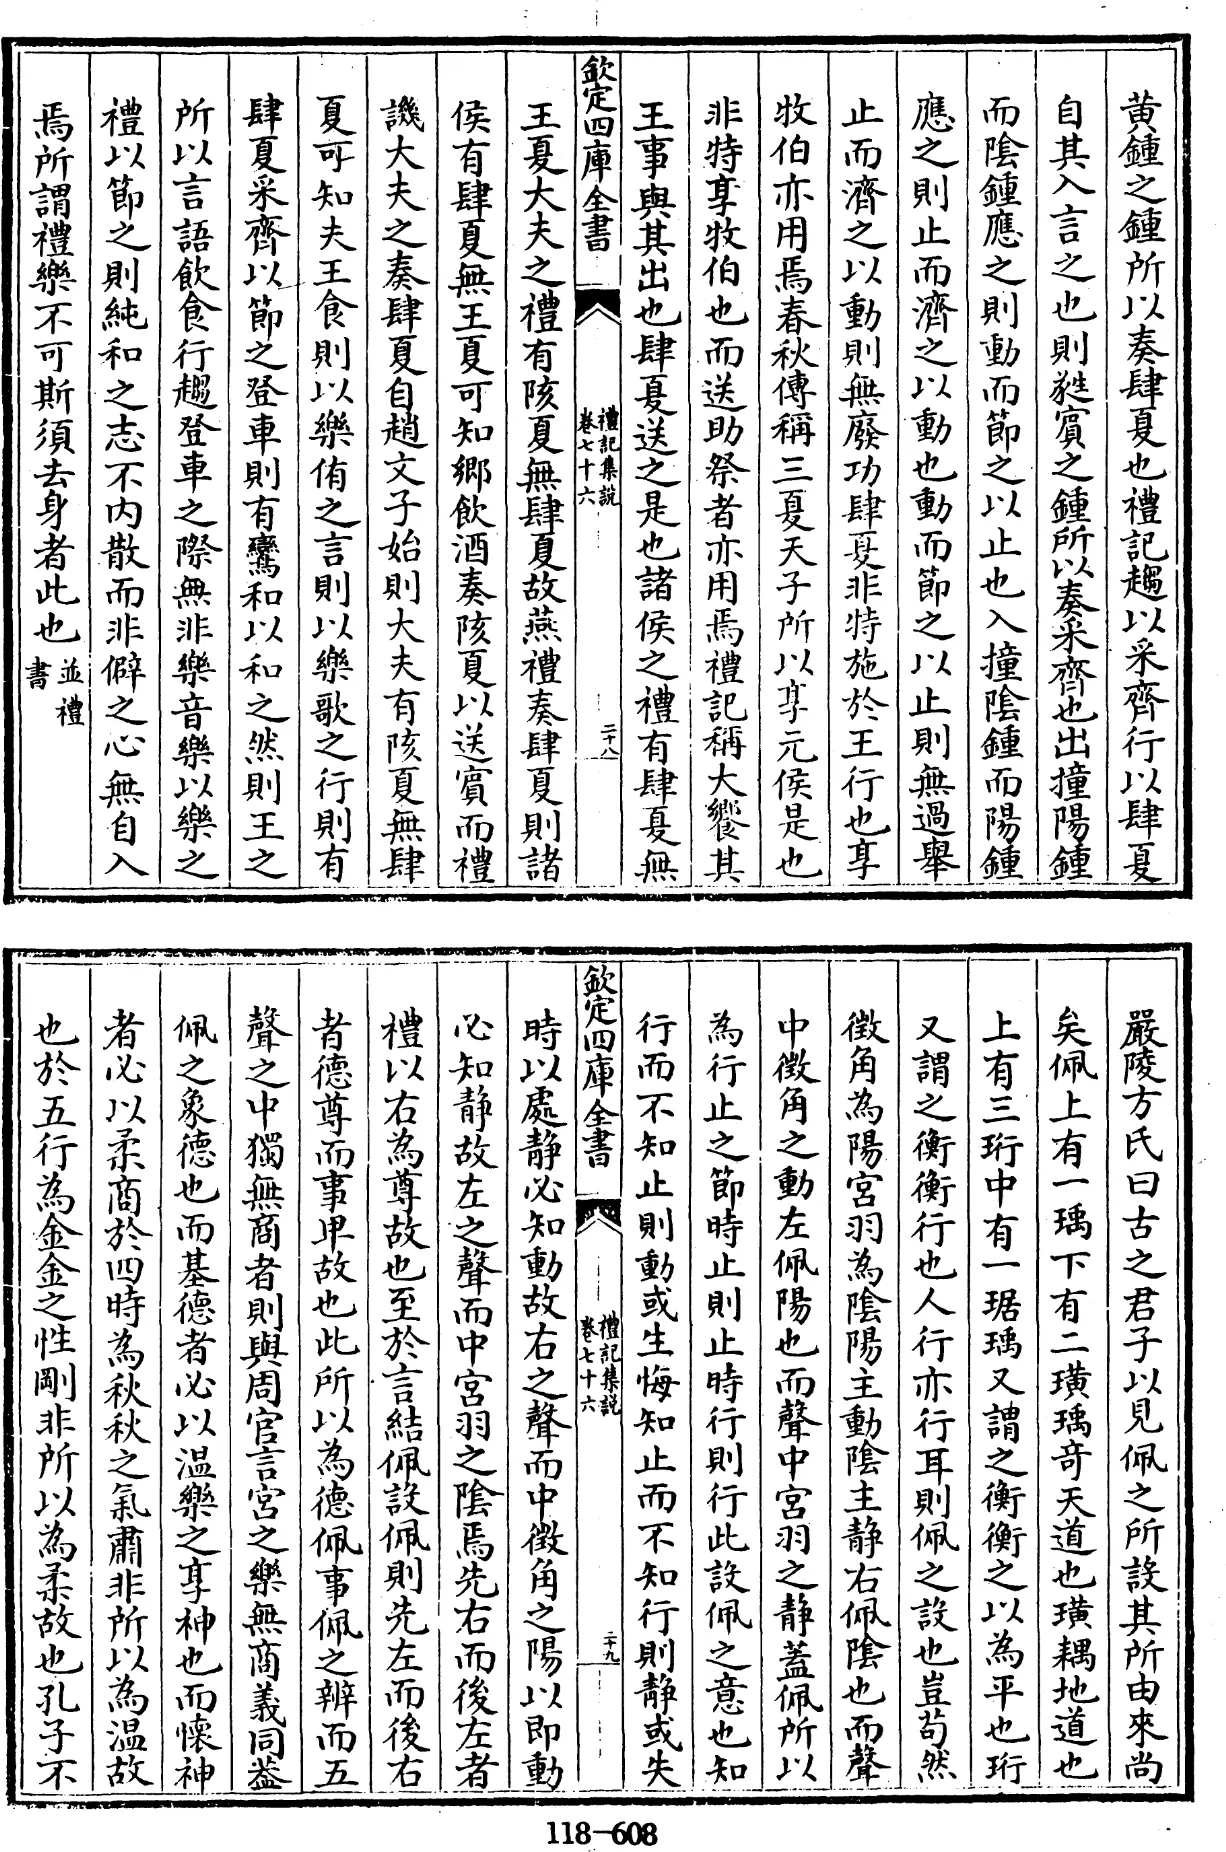 黄鍾之鍾所以奏肆夏也禮記趨以采齊行以肆夏
自其入言之也則蕤賓之鍾所以奏采齊也出撞陽鍾
而陰鍾應之則動而節之以止也入撞陰鍾而陽鍾
應之則止而濟之以動也動而節之以止則無過舉
止而濟之以動則無廢功肆夏非特施於王行也享
牧伯亦用焉春秋傳稱三夏天子所以享元侯是也
非特享牧伯也而送助祭者亦用焉禮記稱大饗其
王事與其出也肆夏送之是也諸侯之禮有肆夏無
欽定四庫全書
禮記集說
卷七十六
二十八
王夏大夫之禮有陔夏無肆夏故燕禮奏肆夏則諸
侯有肆夏無王夏可知鄉飲酒奏陔夏以送賓而禮
譏大夫之奏肆夏自趙文子始則大夫有陔夏無肆
夏可知夫王食則以樂侑之言則以樂歌之行則有
肆夏采齊以節之登車則有鸞和以和之然則王之
所以言語飲食行趨登車之際無非樂音樂以樂之
禮以節之則純和之志不内散而非僻之心無自入
焉所謂禮樂不可斯須去身者此也並禮
書
嚴陵方氏曰古之君子以見佩之所設其所由來尚
矣佩上有一瑀下有二璜瑀竒天道也璜耦地道也
上有三珩中有一琚瑀又謂之衡衡之以為平也珩
又謂之衡衡行也人行亦行耳則佩之設也豈苟然
徵角為陽宮羽為陰陽主動陰主静右佩陰也而聲
中徵角之動左佩陽也而聲中宮羽之静蓋佩所以
為行止之節時止則止時行則行此設佩之意也知
行而不知止則動或生悔知止而不知行則静或失
欽定四庫全書
禮記集說
卷七十六
二十九
時以處静必知動故右之聲而中徵角之陽以即動
必知静故左之聲而中宮羽之陰焉先右而後左者
禮以右為尊故也至於言結佩設佩則先左而後右
者德尊而事卑故也此所以為德佩事佩之辨而五
聲之中獨無商者則與周官言宮之樂無商義同蓋
佩之象德也而基德者必以温樂之享神也而懷神
者必以柔商於四時為秋秋之氣肅非所以為温故
也於五行為金金之性剛非所以為柔故也孔子不
118-608